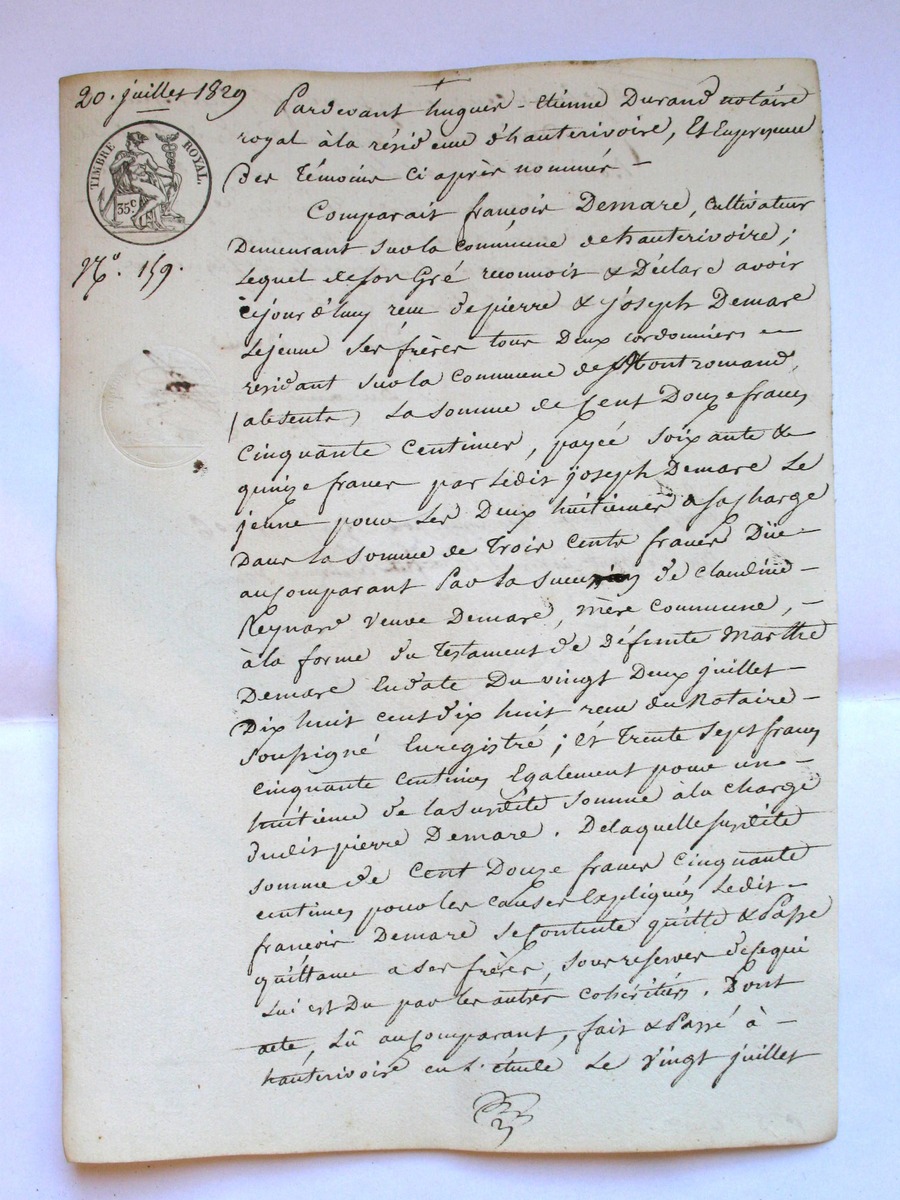 20. juillet 1829
TIMBRE ROYAL.
35 c.
N.o 159.
Pardevant hugues - Etienne Durand notaire
royal à la résidence d'hauterivoire, Et Enpresence
Des Témoins Ci après nommés -
Comparait françois Demare, Cultivateur
Demeurant sur la Commune de hauterivoire ;
Lequel de son Gré reconnoit & Déclare avoir
cejourd'huy reçu de pierre & joseph Demare
Lejeune Ses frères tous Deux cordonniers -
residant sur la Commune de Montromand,
(absents) La somme de Cent Douze francs
Cinquante Centimes, payée Soixante &
quinze francs par Ledit joseph Demare Le
jeune pour Les Deux huitiemes a sa charge
Dans la Somme de Trois Cents francs Düe -
au Comparant Par la de Claudine -
Reynard veuve Demare, mère Commune, -
à la forme du Testament de Défunte Marthe
Demare En date Du vingt Deux juillet -
Dix huit cent dix huit reçu du Notaire -
Soussigné Enregistré ; et Trente Sept francs
cinquante centimes Egalement pour un -
huitieme de la susdite Somme a la charge
dudit pierre Demare. De laquelle susdite
somme de Cent Douze francs Cinquante
centimes pour les causes Expliquées Ledit -
françois Demare se Contente quitte & Passe
quittance a ses frères, sous reserves de ce qui
Lui est Du par les autres cohéritiers. Dont
acte, Lû au Comparant, fait & Passé à -
hauterivoire en L'étude Le vingt juillet